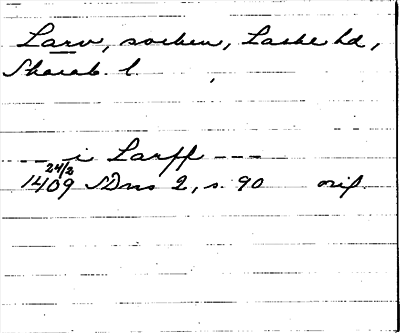 Larv, socken, Laske hd,
Skarab. l.
--- i Larff ---
1409 24/2 SDns 2, s. 90 orig.